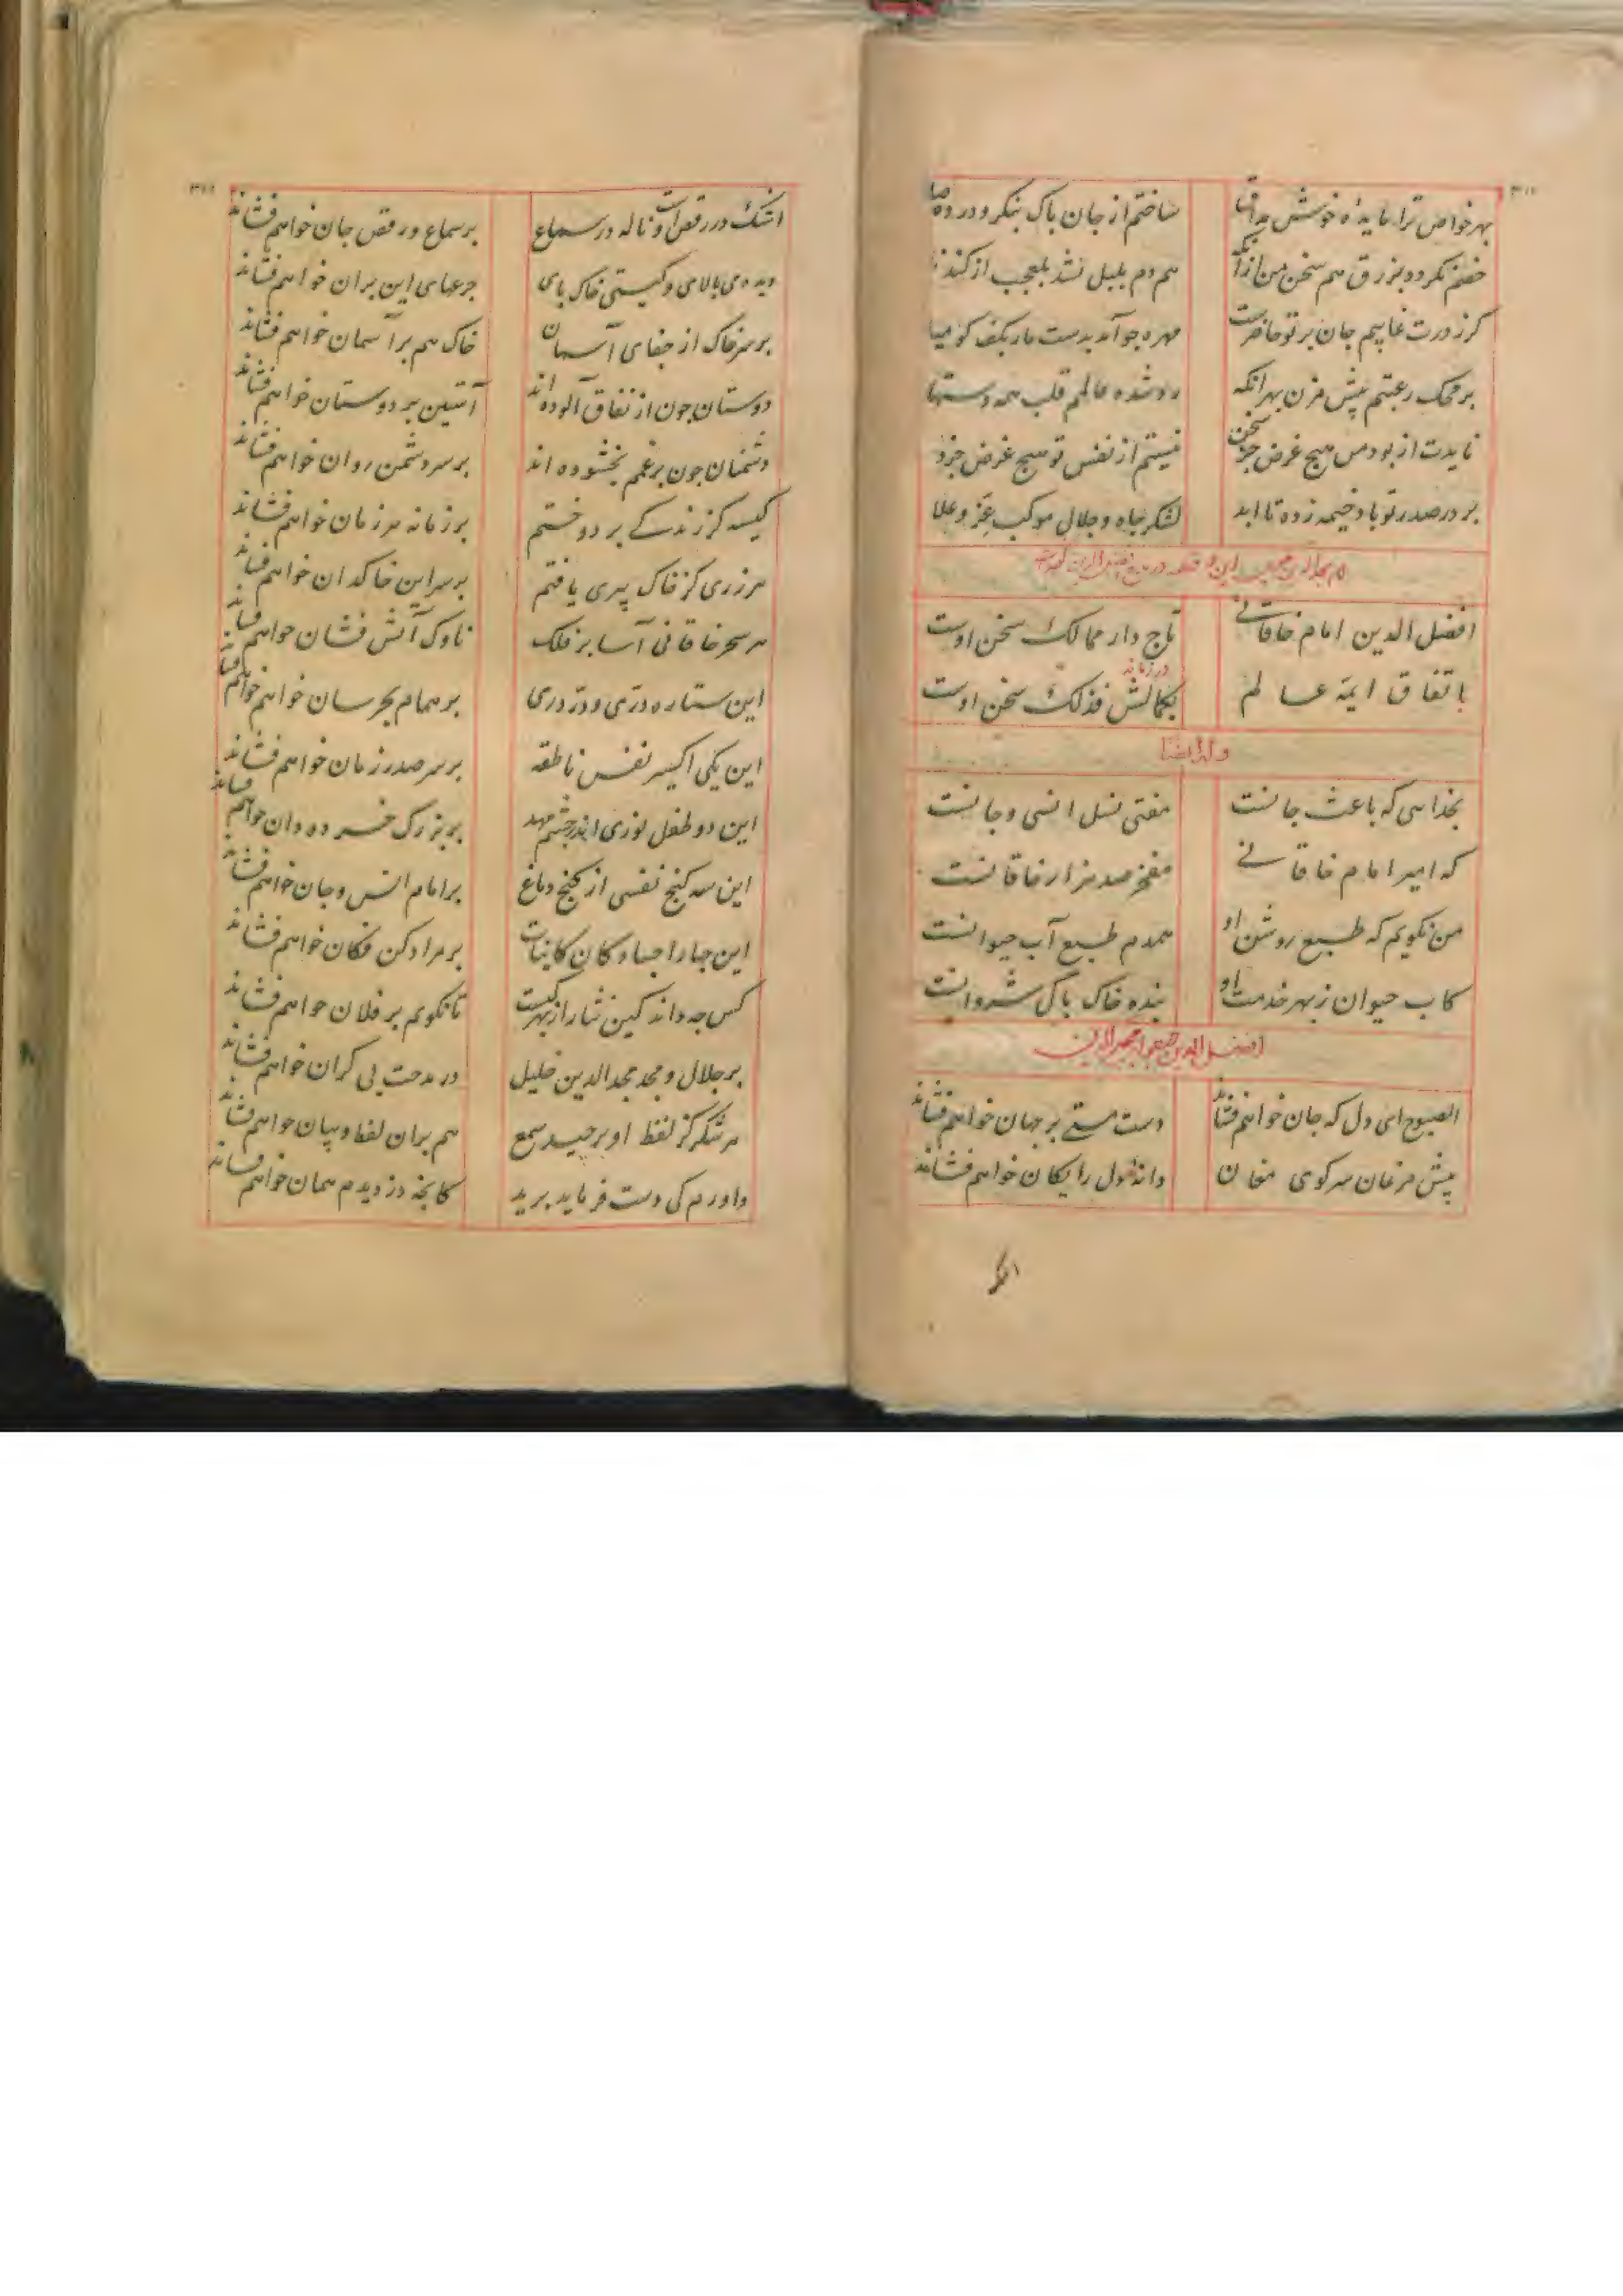 بهر خواص ترا مایده خوش مذاق ساختم از جان پاک بنگر و در ده صلا
خصم نکردد بزرق هم سخن من ازآنکه هم دم بلبل نشد بلعجب از کندنا
کرز درت غایبم جان بر تو حاضرست مهره جو آمد بدست مار بکف کو میا
بر محک رغبتم پیش مزن بهر انکه رد شده عالمم قلب همه دستها
نایدت از بود من هیچ غرض جز سخن نیستم از نفس تو هیچ غرض جز
بر در صدر تو باد خیمه زده تا ابد لشکر جاه و جلال موکب عز و علا
این قطعه در مدح افضل الدین
افضل الدین امام خاقانی تاج دار ممالک سخن اوست
باتفاق ایمة عالم در زمانه بکمالش فذلک سخن اوست
وله ایضا
بخدایی که باعث جانست مفتی نسل انسی و جانست
که امیر امام خاقانی مفخر صد هزار خاقانست
من نکویم که طبع روشن او همدم طبع آب حیوانست
کاب حیوان ز بهر خدمت او بنده خاک پاک شروانست
افضل الدین مجیر الدین
الصبوح ای دل که جان خواهم فشاند دست مستی بر جهان خواهم فشاند
پیش مرغان سر کوی مغان دانهٔ دل رایکان خواهم فشاند
اشک
اشک در رقص است و ناله در سماع بر سماع و رقص جان خواهم فشاند
دیده می بالای و کیتی خاک بای جرعهای این بران خواهم فشاند
بر سر خاک از جفای آسمان خاک هم بر آسمان خواهم فشاند
دوستان جون از نفاق آلوده اند آستین بر دوستان خواهم فشاند
دشمنان جون بر غمم بخشوده اند بر سر دشمن روان خواهم فشاند
کیسه کز زندکی بر دوختم بر زمانه هر زمان خواهم فشاند
هر زری کز خاک پیری یافتم بر سر این خاکدان خواهم فشاند
هر سحر خاقانی آسا بر فلک ناوک آتش فشان خواهم فشاند
این ستاره درّی و درّ دری بر همام بحرسان خواهم خواهم فشاند
این یکی اکسیر نفس ناطقه بر سر صدر زمان خواهم فشاند
این دو طفل نوری اندر چشم مهد بر بزرک خرده دان خواهم فشاند
این سه کنج نفسی از کنج دماغ بر امام انس و جان خواهم فشاند
این جهار اجساد کان کاینات بر مراد کن فکان خواهم فشاند
کس جه داند کین نثار از بهر کیست تا نکویم بر فلان خواهم فشاند
بر جلال و مجد مجد الدین خلیل در مدحت بی کران خواهم فشاند
هر شکر کز لفظ او برجید سمع هم بران لفظ و بیان خواهم فشاند
داورم کی دست فرماید برید کانجه دزدیدم همان خواهم فشاند